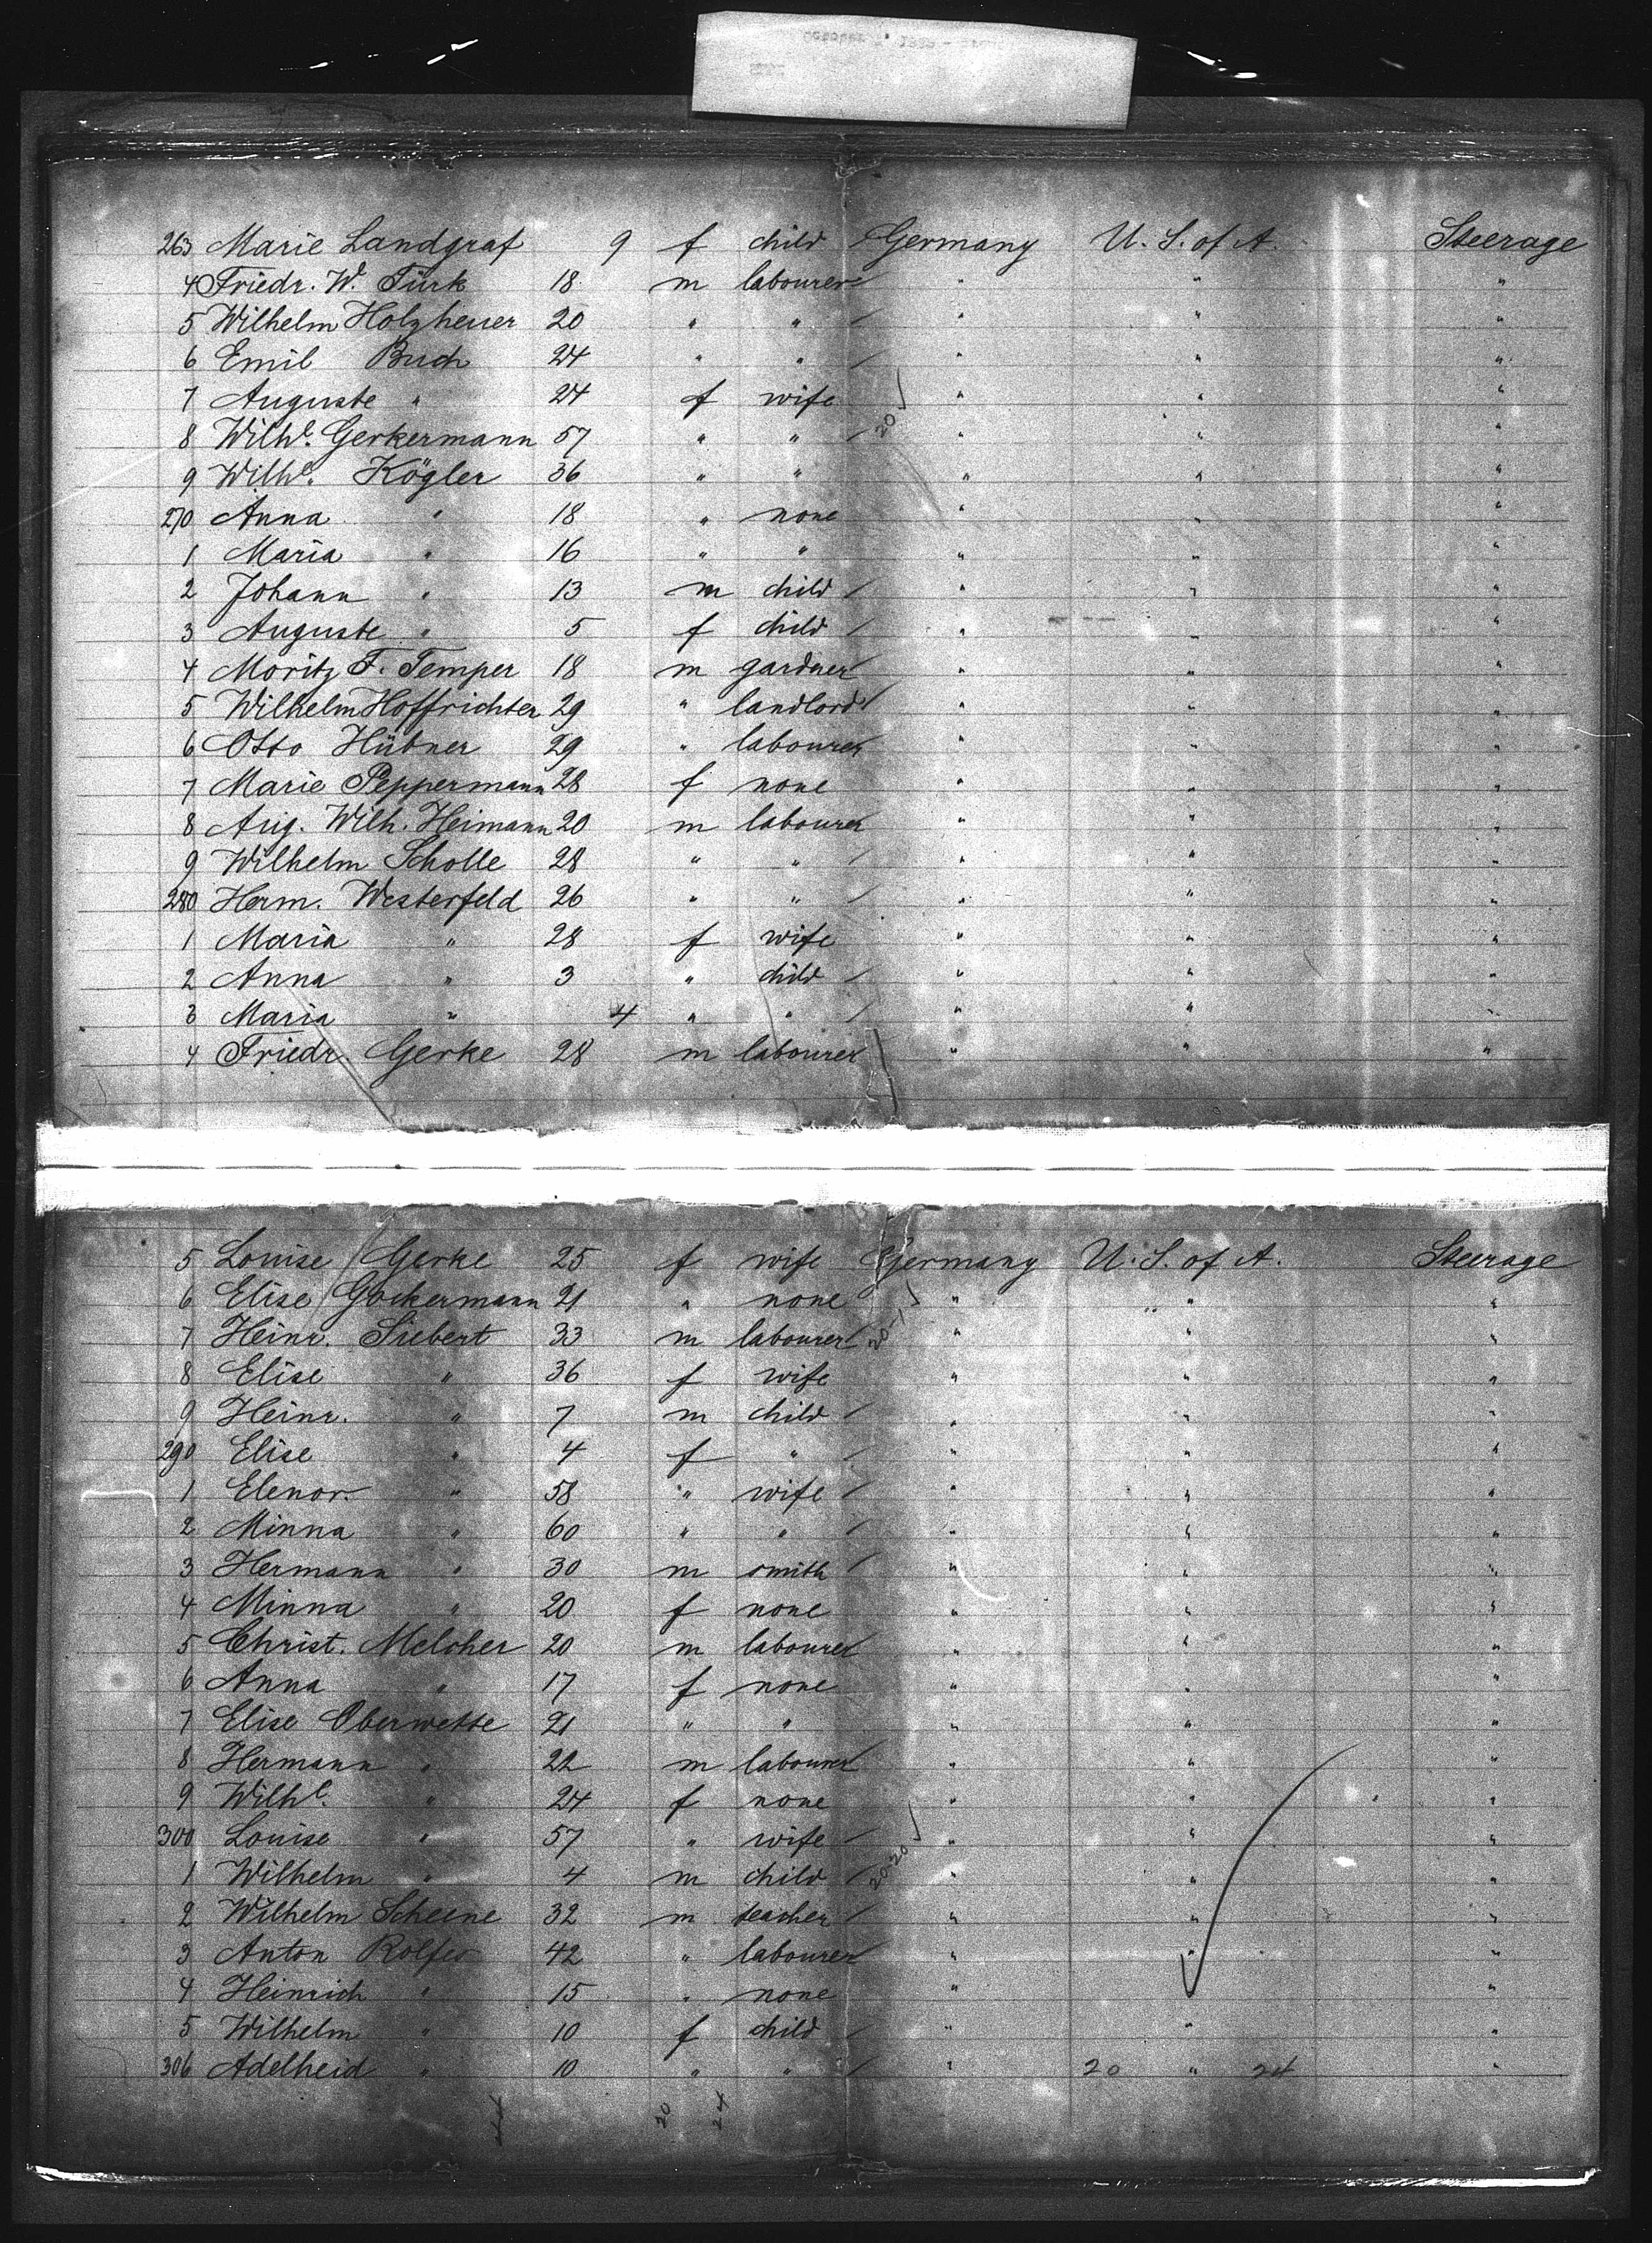 263 Marie Landgraf 9 f child Germany U. S. of A. Steerage
4 Friedr. W. Türk 18 m labourer " " "
5 Wilhelm Holzheuer 20 " " " " "
6 Emil Buch 24 " " " " "
7 Auguste " 24 f wife " " "
8 Wilhe. Gerkermann 57 " " 20 " " "
9 Wilhe. Kögler 36 " " " " "
270 Anna " 18 " none " " "
1 Maria " 16 " " " " "
2 Johann " 13 m child " " "
3 Auguste " 5 f child " " "
4 Moritz F. Temper 18 m gardner " " "
5 Wilhelm Hoffrichter 29 " landlord " " "
6 Otto Hübner 29 " labourer " " "
7 Marie Peppermann 28 f none " " "
8 Aug. Wilh. Heimann 20 m labourer " " "
9 Wilhelm Scholle 28 " " " " "
280 Herm. Westerfeld 26 " " " " "
1 Maria " 28 f wife " " "
2 Anna " 3 " child " " "
3 Maria " 4 " " " " "
4 Friedr. Gerke 28 m labourer " " "
5 Louise Gerke 25 f wife Germany U. S. of A. Steerage
6 Elise Gockermann 21 " none " " "
7 Heinr. Siebert 33 m labourer 20-1 " " "
8 Elise " 36 f wife " " "
9 Heinr. " 7 m child " " "
290 Elise " 4 f " " " "
1 Elenor. " 58 " wife " " "
2 Minna " 60 " " " " "
3 Hermann " 30 m smith " " "
4 Minna " 20 f none " " "
5 Christ. Melcher 20 m labourer " " "
6 Anna " 17 f none " " "
7 Elise Oberwette 21 " " " " "
8 Hermann " 22 m labourer " " "
9 Wilhe. " 24 f none " " "
300 Louise " 57 " wife " " "
1 Wilhelm " 4 m child 20-20 " " "
2 Wilhelm Scheene 32 m teacher " " "
3 Anton Rolfes 42 " labourer " " "
4 Heinrich " 15 " none " " "
5 Wilhelm " 10 f child " " "
306 Adelheid " 10 " " " 20 " 24 "
44 20 24